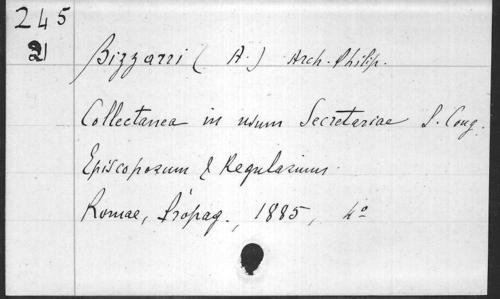 245
21
Bizzarri (A.) Arch. Philip.
Collectanea in usum Secretariae S. Cong.
Episcoporum & Regularium
Romae, Propag., 1885, 4º